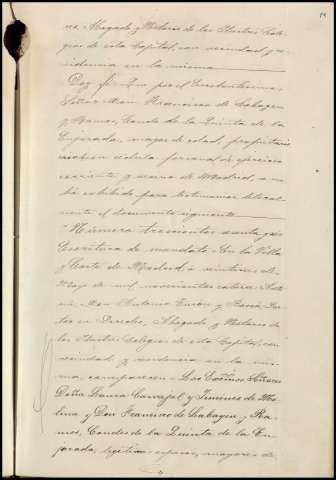 na, Abogado y Notario de los Ilustres Cole-
gios de esta Capital, con vecindad y re-
sidencia en la misma
Doy fe: Que por el Excelentísimo
Señor Don Francisco de Losbayen
y Ramos, Conde de la Quinta de la
Enjarada, mayor de edad, propietario
con cédula personal de ejercicio
corriente y vecino de Madrid, se me
ha exhibido para testimoniar literal-
mente el documento siguiente
"Número trescientos
Escritura de mandato. En la Villa
y Corte de Madrid, a veintiuno de
Mayo de mil novecientos catorce. Ante
mi, Don Antonio Turón y Boscá, Doc-
tor en Derecho, Abogado y Notario de
los Ilustres Colegios de esta Capital, con
vecindad y residencia en la mis-
ma, comparecen = Los Excmos. Señores
Doña Laura Carvajal y Jiménez de Mo-
lina y Don Francisco de Losbayen y Ra-
mos, Condes de la Quinta de la En-
jarada, legítimos esposos, mayores de